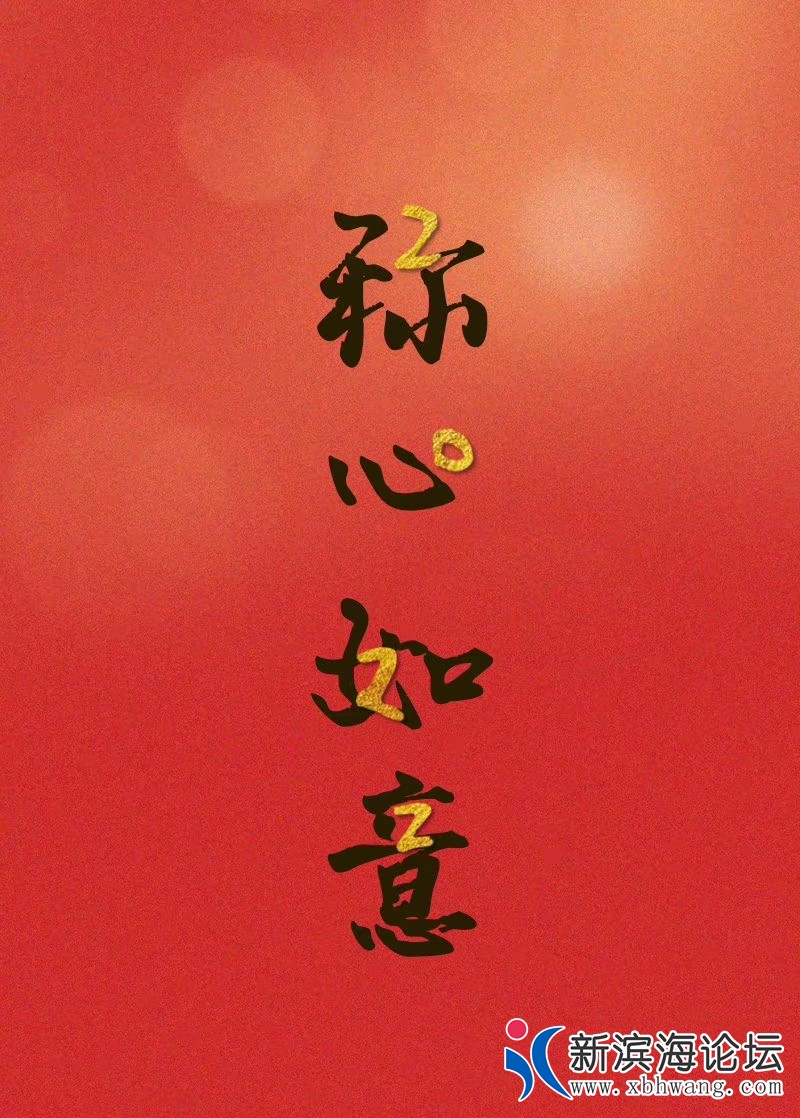 称
心
如
意
2
0
2
2
新滨海论坛
www.xbhwang.com